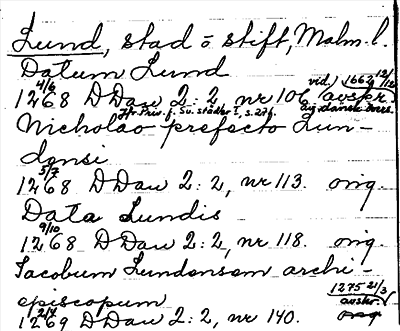 Lund, stad o stift, Malm. l.
Datum Lund
4/6 vid. 1662 12/12
1268 DDan 2:2, nr 106 avskr.
Jfr Priv. f. Sv. städer I, s. 276. av dansk övers.
Nicholao prefecto Lun-
densi
5/7
1268 DDan 2:2, nr 113. orig.
Data Lundis
9/10
1268 DDan 2:2, nr 118. orig.
Jacobum Lundensem archi-
episcopum
1275 21/3
2/7 avskr.
1269 DDan 2:2, nr 140. orig